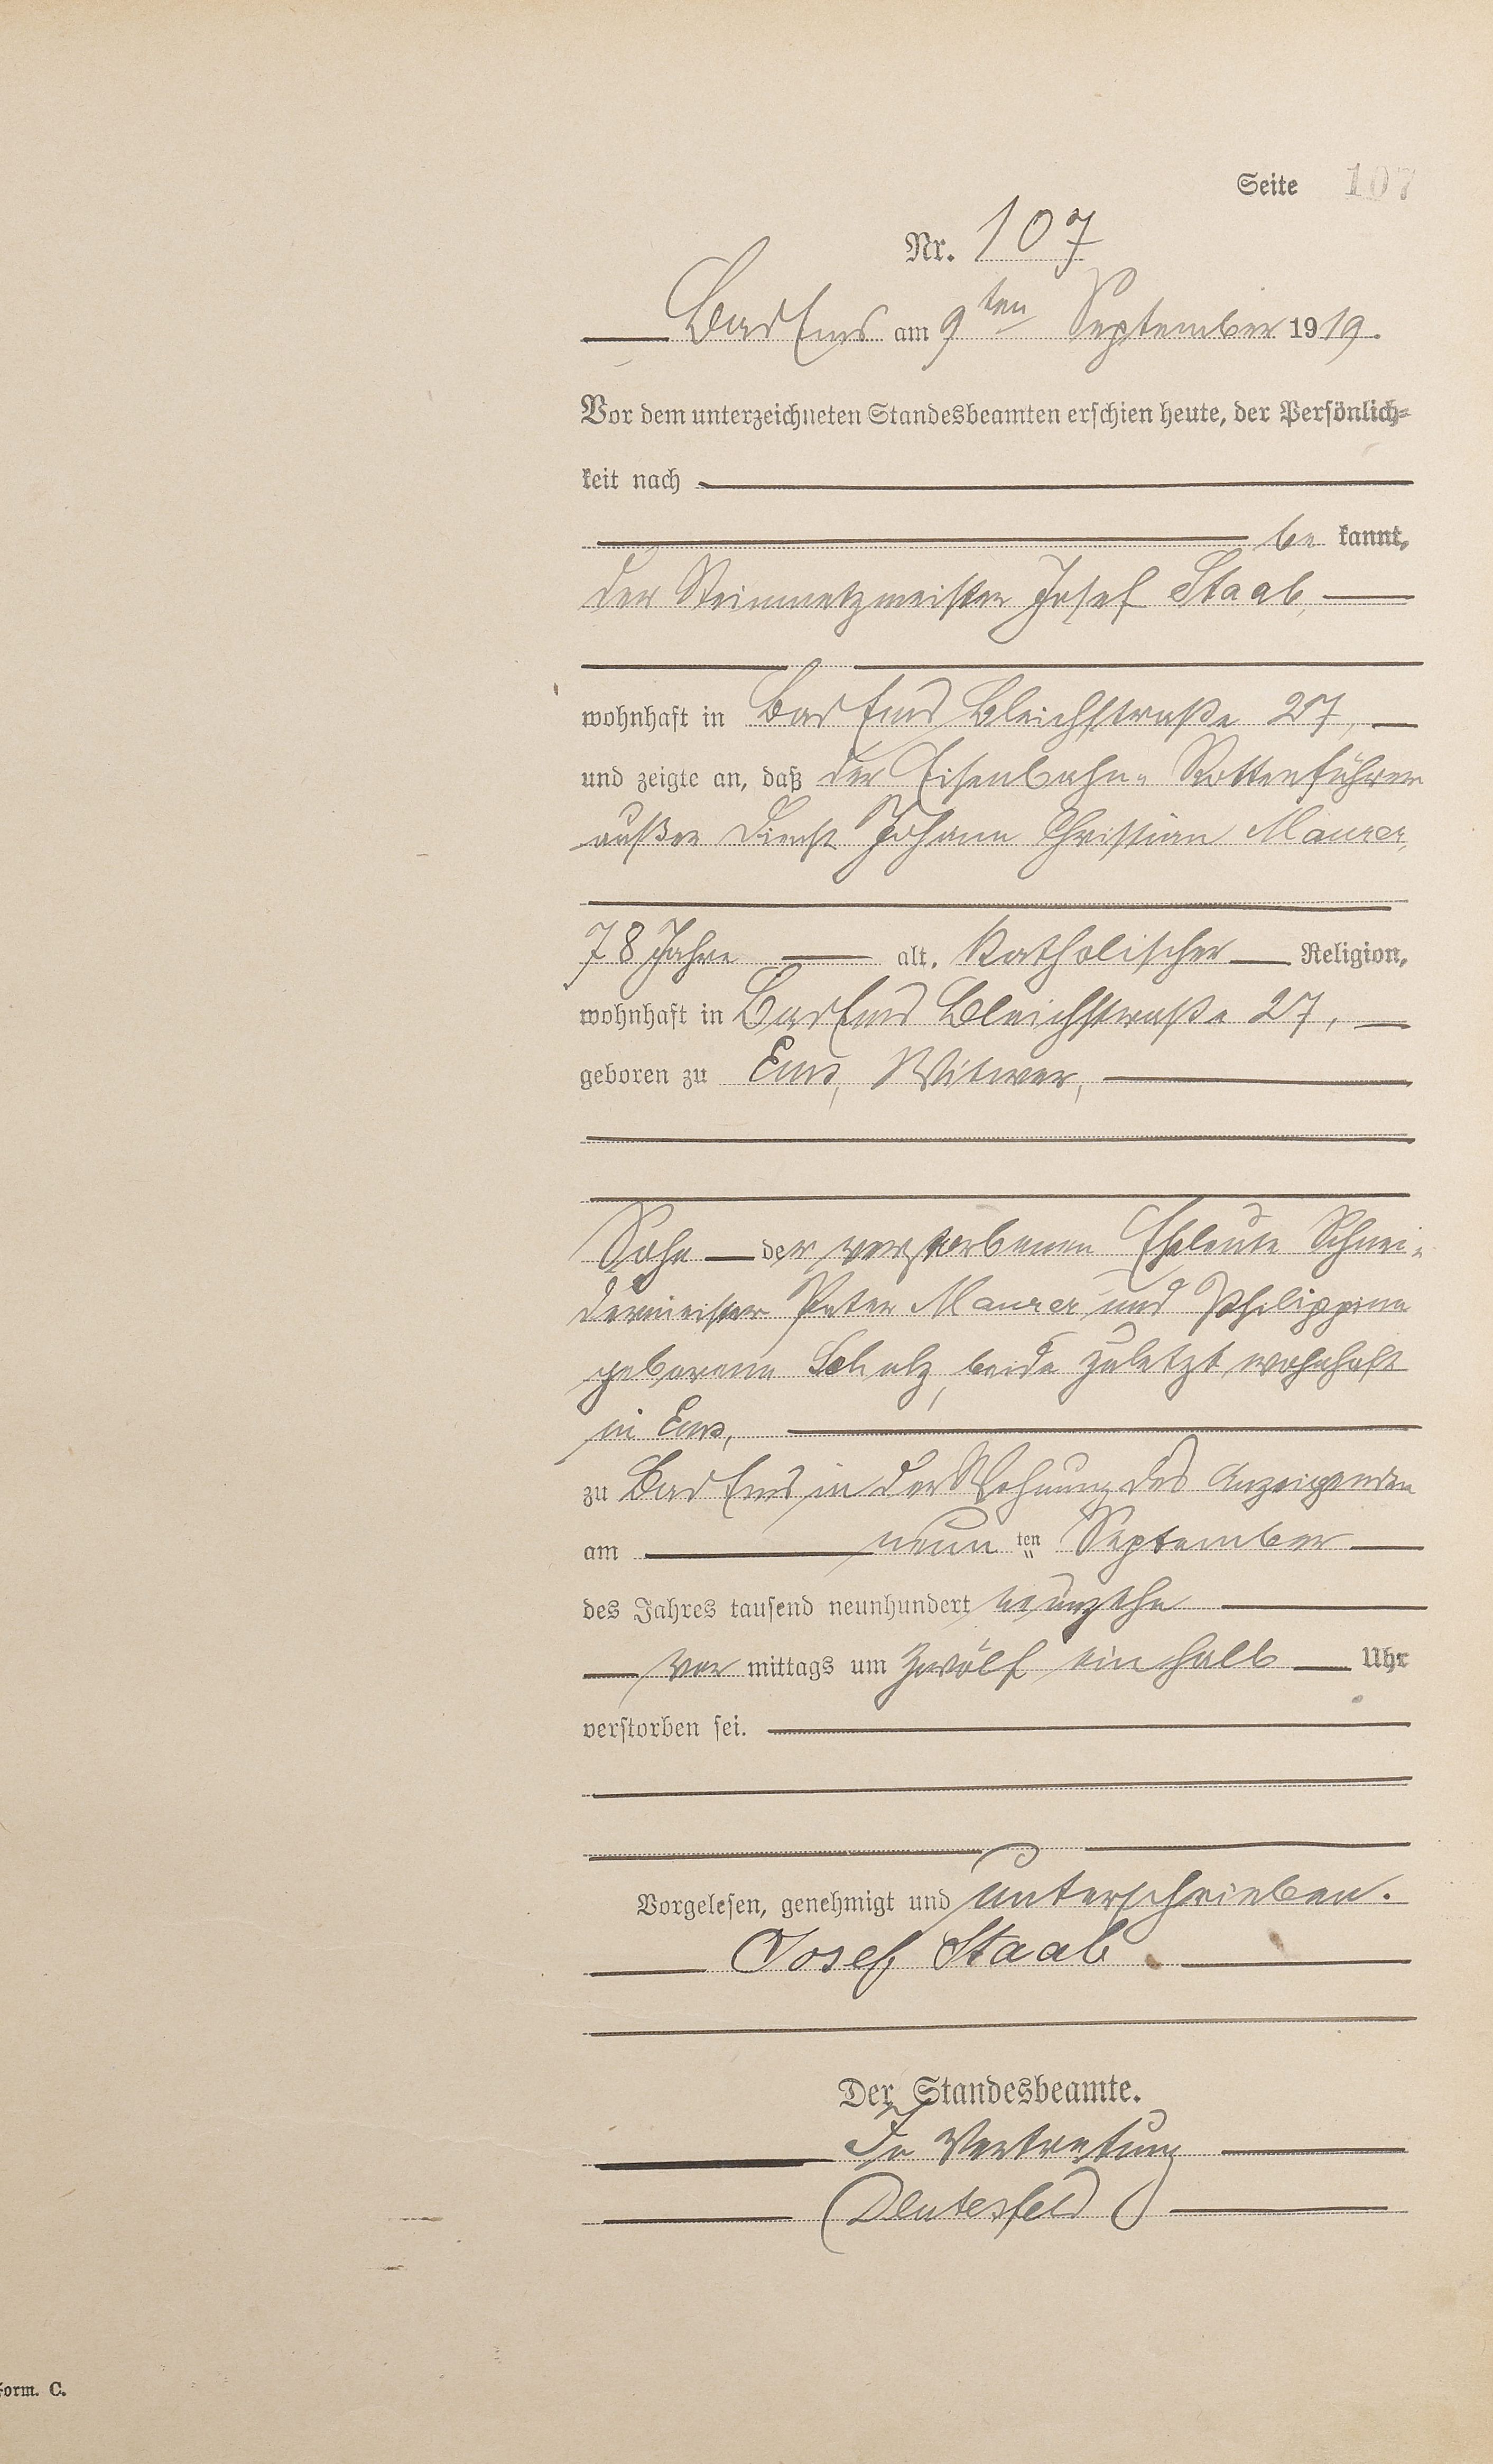 Seite 107
Nr. 107
Bad Ems am 9ten September 1919.
Vor dem unterzeichneten Standesbeamten erschien heute, der Persönlich-
keit nach
be kannt,
der Steinmetzmeister Josef Staab,
wohnhaft in Bad Ems Bleichstraße 27,
und zeigte an, daß der Eisenbahn-Rottenführer
außer Dienst Johann Christian Maurer,
78 Jahre alt, katholischer Religion,
wohnhaft in Bad Ems Bleichstraße 27,
geboren zu Ems, Witwer,
Sohn der verstorbenen Eheleute Schnei-
dermeister Peter Maurer und Philippine
geborene Scholz, beide zuletzt wohnhaft
in Ems,
zu Bad Ems in der Wohnung des Anzeigenden
am neun ten September
des Jahres tausend neunhundert neunzehn
vor mittags um zwölf ein halb Uhr
verstorben sei.
Vorgelesen, genehmigt und unterschrieben.
Josef Staab
Der Standesbeamte.
In Vertretung
Form. C.